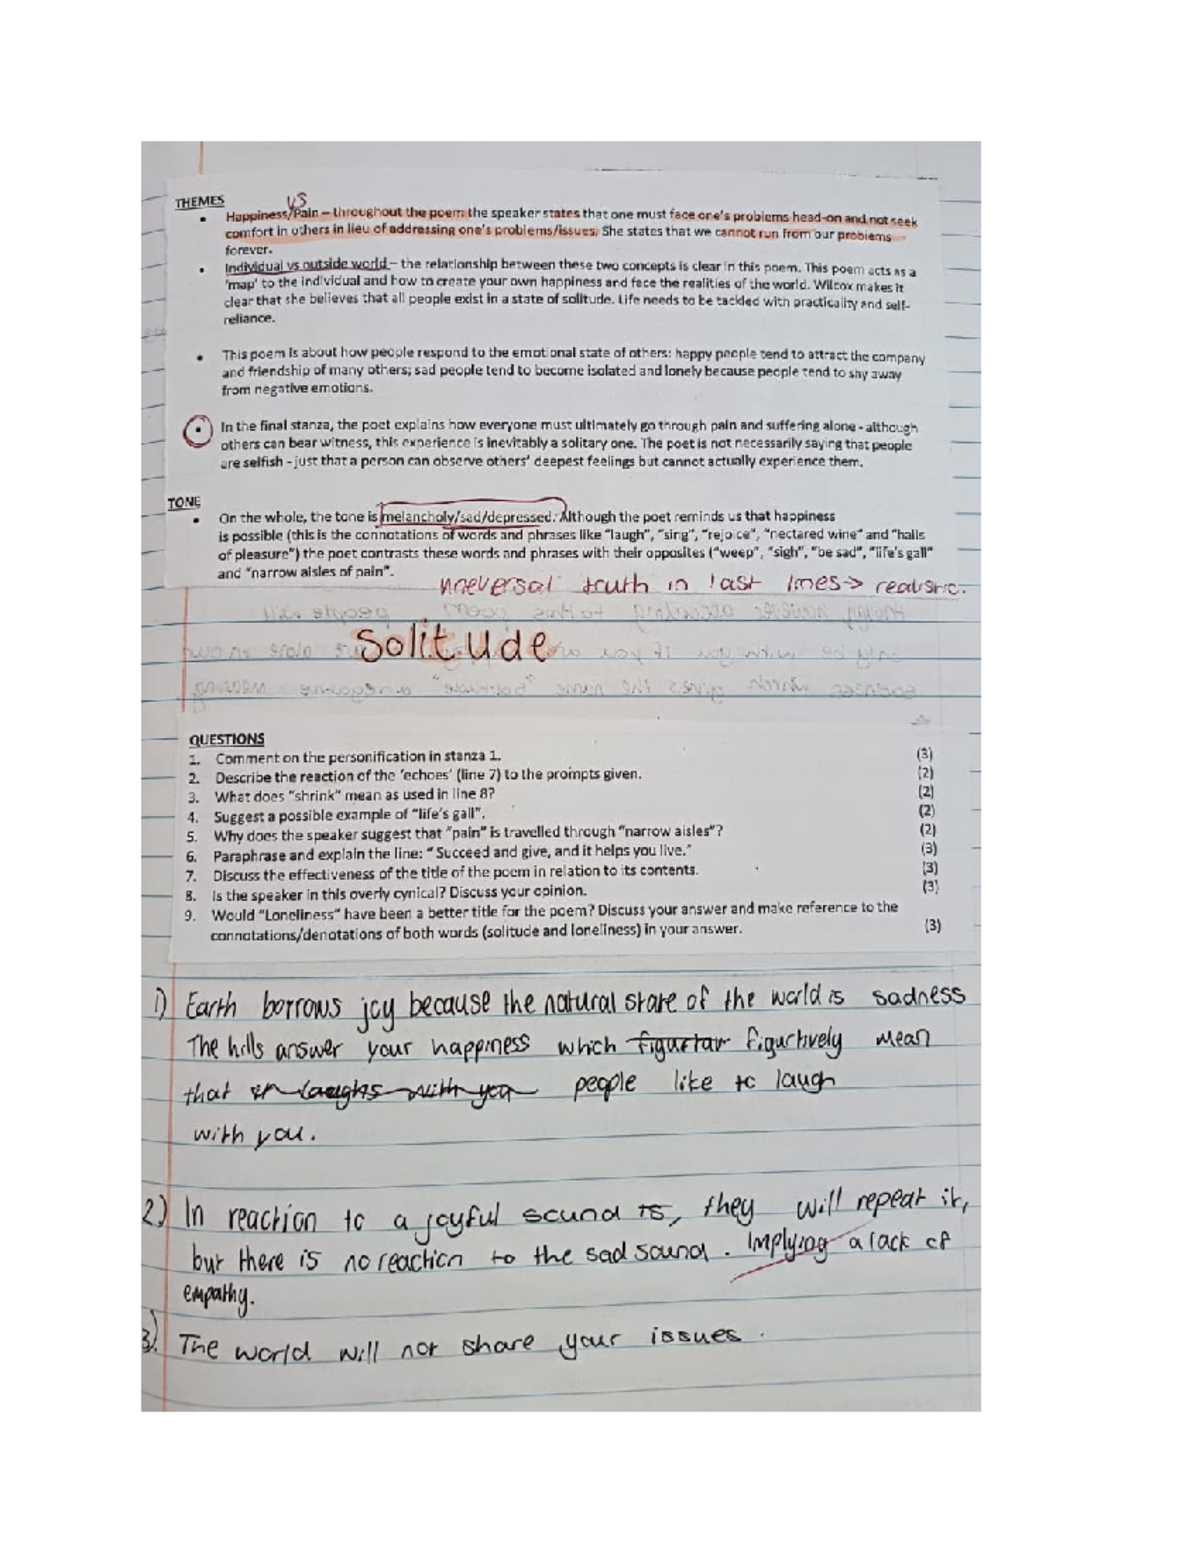 THEMES
vs
• Happiness/Pain – throughout the poem the speaker states that one must face one's problems head-on and not seek
comfort in others in lieu of addressing one's problems/issues. She states that we cannot run from our problems
forever.
• Individual vs outside world – the relationship between these two concepts is clear in this poem. This poem acts as a
'map' to the individual and how to create your own happiness and face the realities of the world. Wilcox makes it
clear that she believes that all people exist in a state of solitude. Life needs to be tackled with practicality and self-
reliance.
• This poem is about how people respond to the emotional state of others: happy people tend to attract the company
and friendship of many others; sad people tend to become isolated and lonely because people tend to shy away
from negative emotions.
• In the final stanza, the poet explains how everyone must ultimately go through pain and suffering alone - although
others can bear witness, this experience is inevitably a solitary one. The poet is not necessarily saying that people
are selfish - just that a person can observe others' deepest feelings but cannot actually experience them.
TONE
• On the whole, the tone is melancholy/sad/depressed. Although the poet reminds us that happiness
is possible (this is the connotations of words and phrases like "laugh", "sing", "rejoice", "nectared wine" and "halls
of pleasure") the poet contrasts these words and phrases with their opposites ("weep", "sigh", "be sad", "life's gall"
and "narrow aisles of pain".
uneversal truth in last lines → realistic.
Solitude
QUESTIONS
1. Comment on the personification in stanza 1. (3)
2. Describe the reaction of the 'echoes' (line 7) to the prompts given. (2)
3. What does "shrink" mean as used in line 8? (2)
4. Suggest a possible example of "life's gall". (2)
5. Why does the speaker suggest that "pain" is travelled through "narrow aisles"? (2)
6. Paraphrase and explain the line: " Succeed and give, and it helps you live." (3)
7. Discuss the effectiveness of the title of the poem in relation to its contents. (3)
8. Is the speaker in this overly cynical? Discuss your opinion. (3)
9. Would "Loneliness" have been a better title for the poem? Discuss your answer and make reference to the
connotations/denotations of both words (solitude and loneliness) in your answer. (3)
1) Earth borrows joy because the natural state of the world is sadness
The hills answer your happiness which figurtar figuritively mean
that it laughs with you people like to laugh
with you.
2) In reaction to a joyful sound is, they will repeat it,
but there is no reaction to the sad sound. Implying a lack of
empathy.
3). The world will not share your issues.